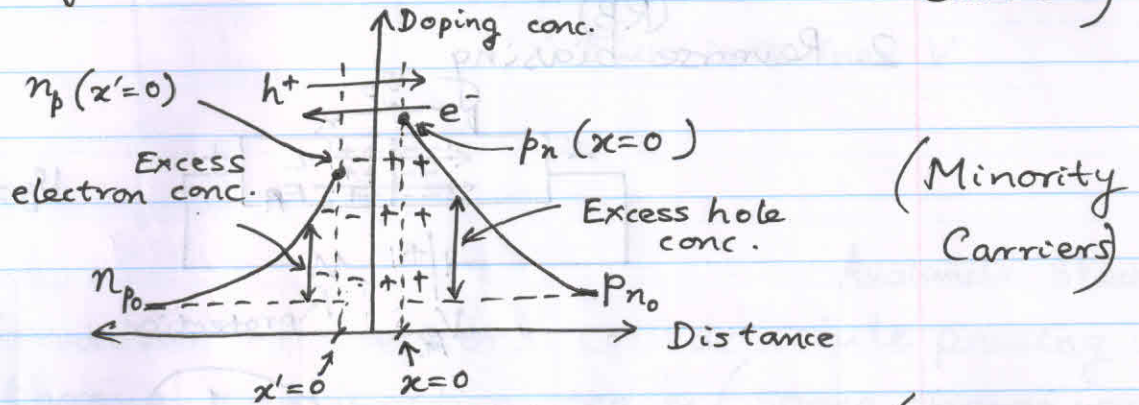 Doping conc.
n_p (x'=0)
h⁺
e⁻
p_n (x=0)
Excess
electron conc.
- + +
- - + +
- - + +
Excess hole
conc.
(Minority
Carriers)
n_p₀
p_n₀
Distance
x'=0
x=0